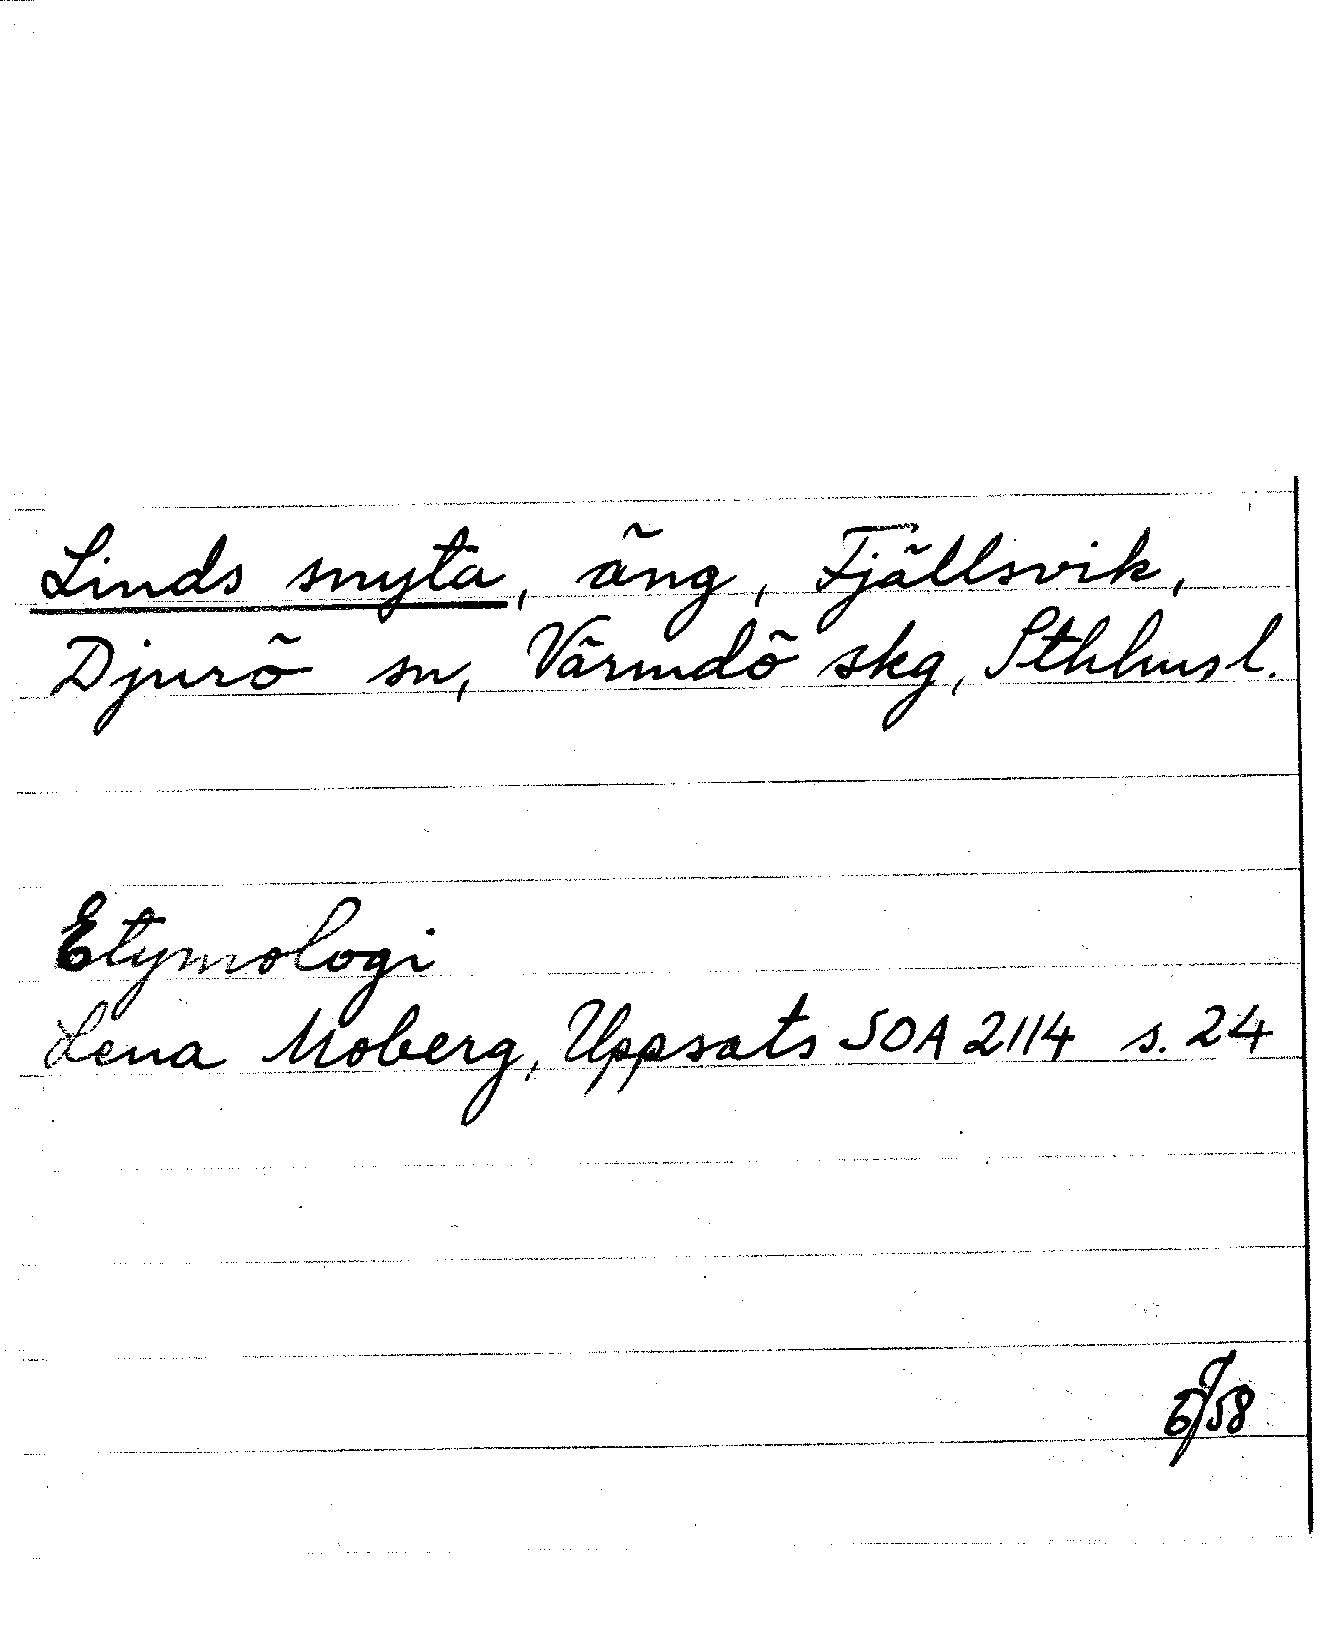 Linds snyta, äng, Fjällsvik,
Djurö sn, Värmdö skg, Sthlms l.
Etymologi
Lena Moberg, Uppsats SOA 2114 s. 24